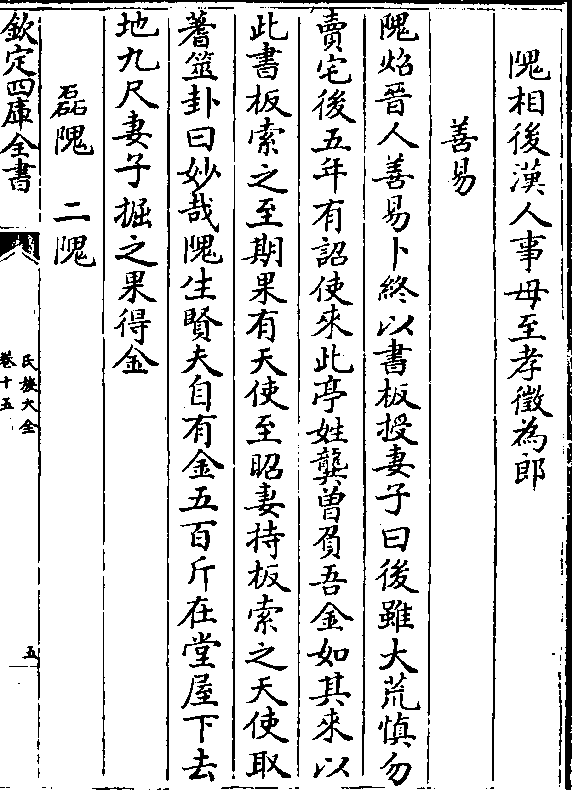 隗相後漢人事母至孝徵為郎
善易
隗炤晉人善易卜終以書板授妻子曰後雖大荒慎勿
賣宅後五年有詔使來此亭姓龔曾負吾金如其來以
此書板索之至期果有天使至昭妻持板索之天使取
蓍筮卦曰妙哉隗生賢夫自有金五百斤在堂屋下去
地九尺妻子掘之果得金
磊隗　二隗
欽定四庫全書
氏族大全
卷十五
五